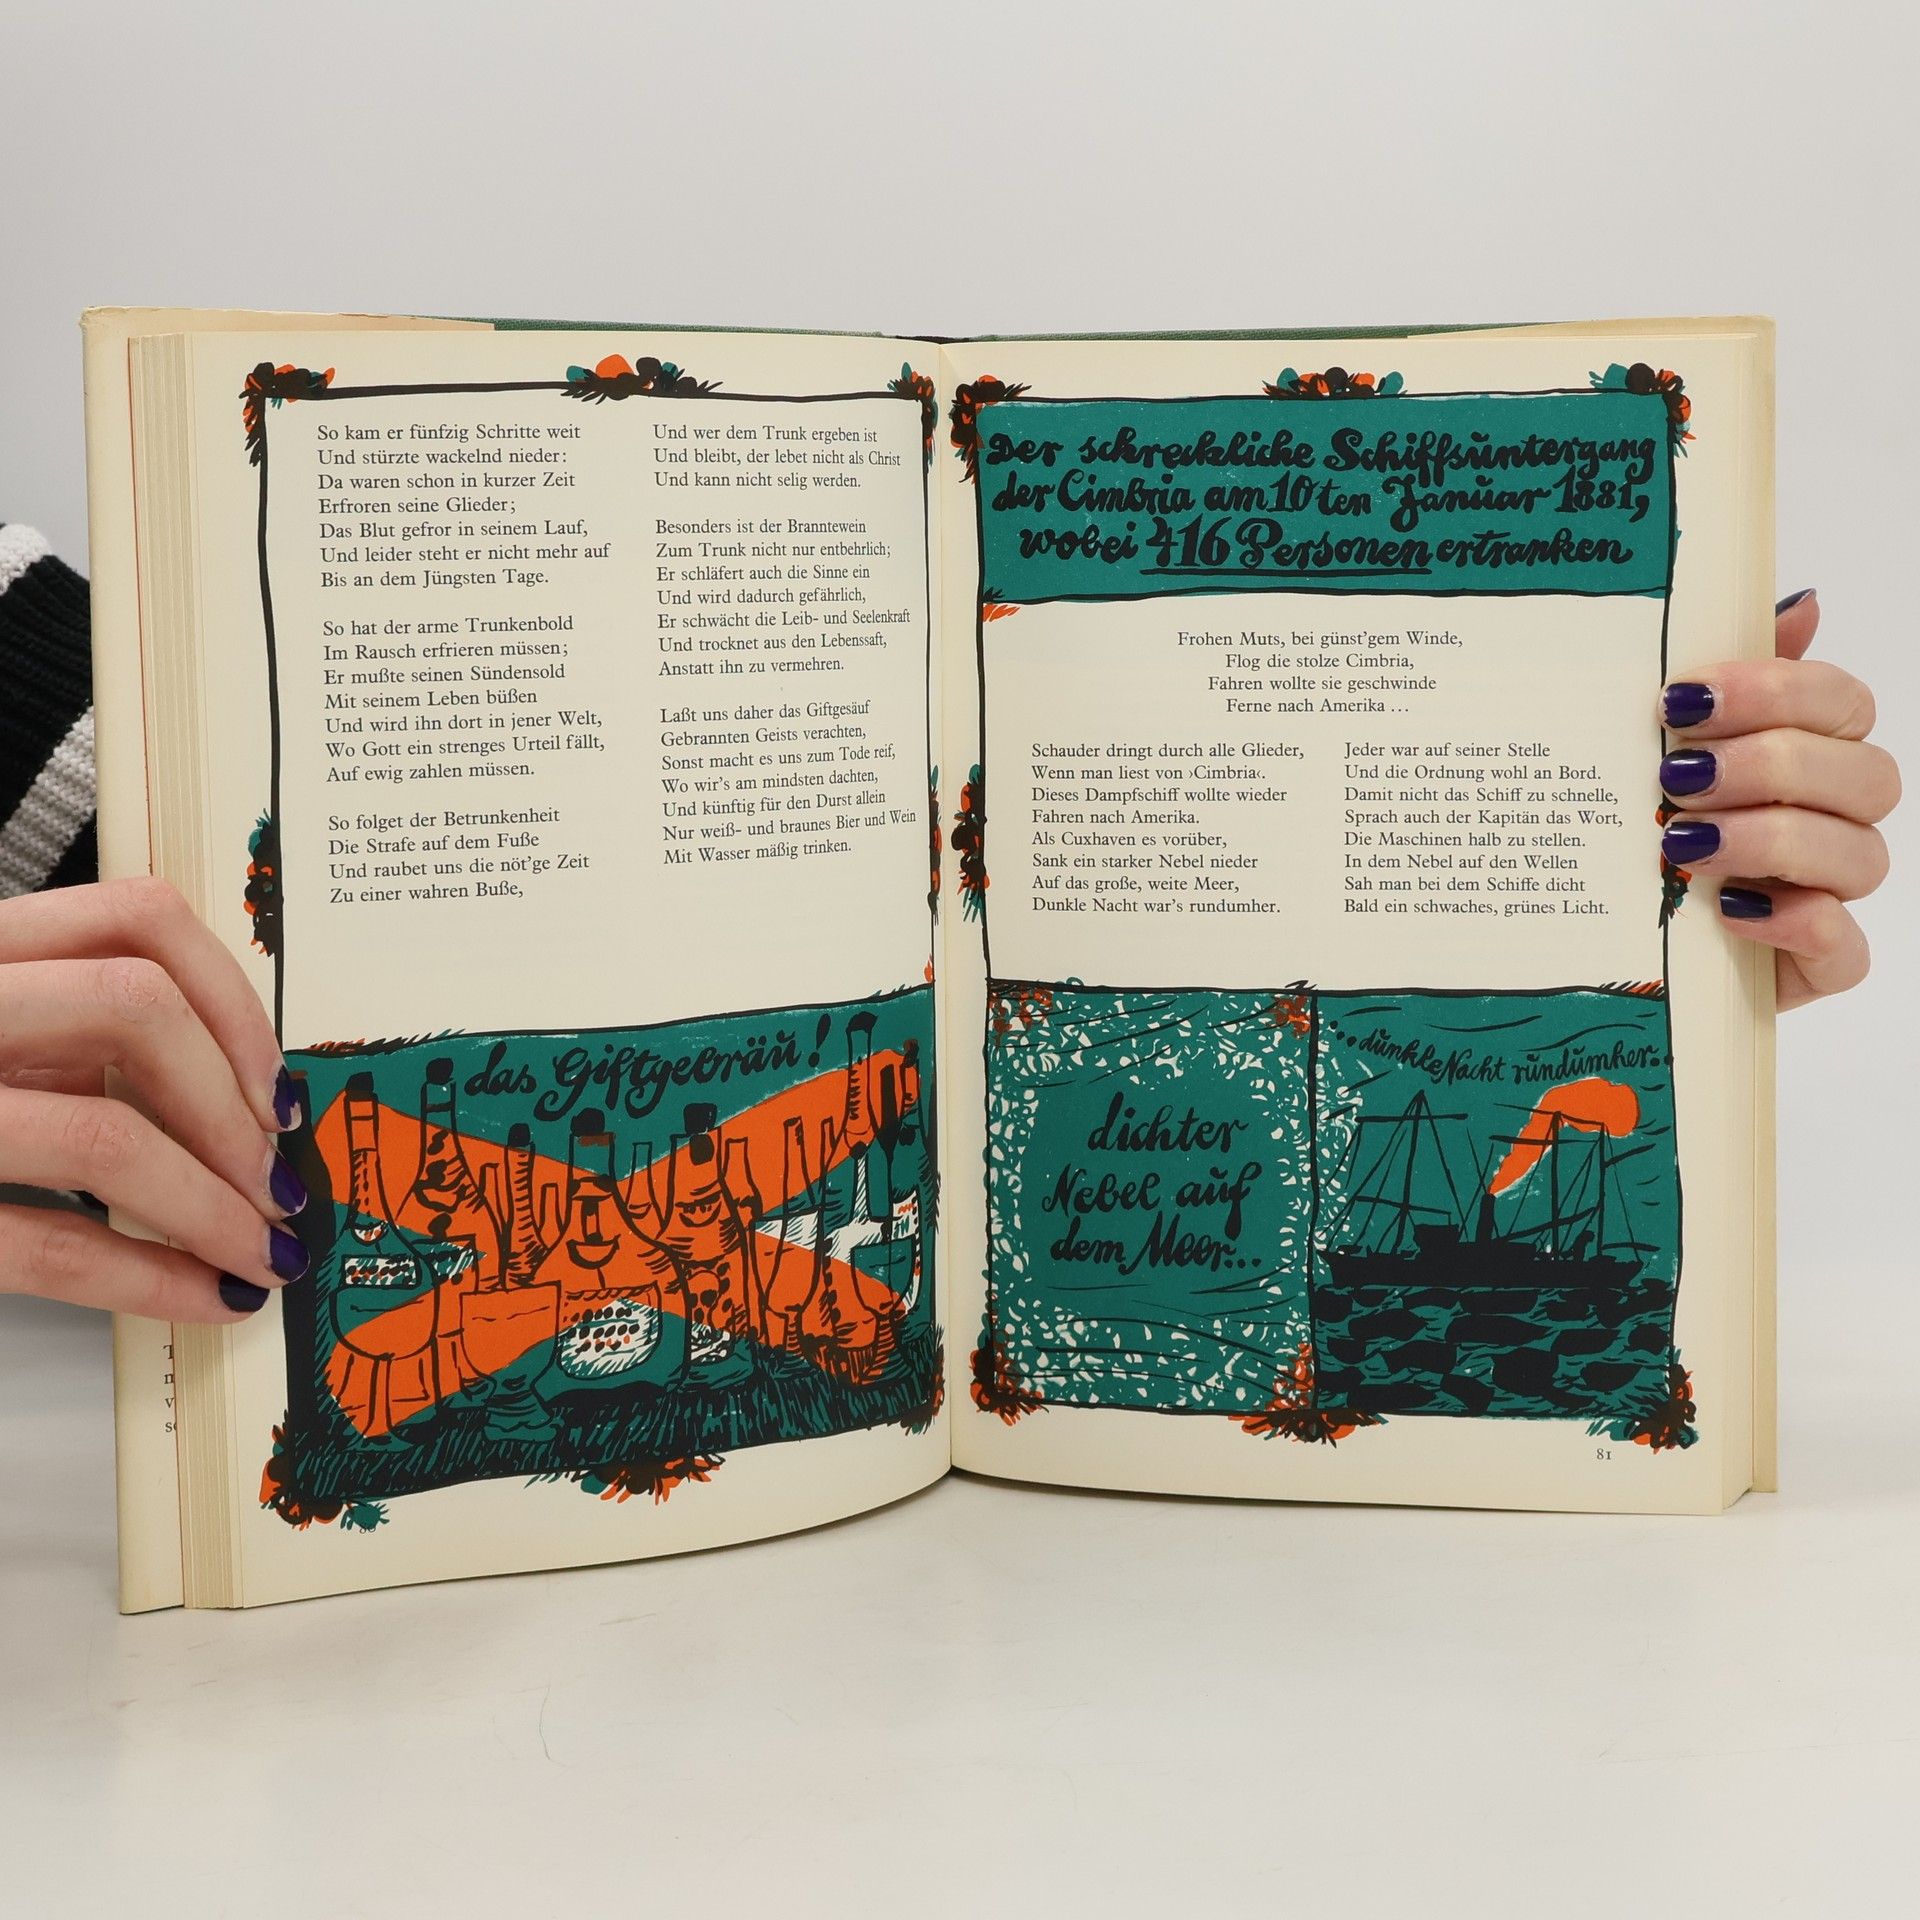 So kam er fünfzig Schritte weit
Und stürzte wackelnd nieder:
Da waren schon in kurzer Zeit
Erfroren seine Glieder;
Das Blut gefror in seinem Lauf,
Und leider steht er nicht mehr auf
Bis an dem Jüngsten Tage.
So hat der arme Trunkenbold
Im Rausch erfrieren müssen;
Er mußte seinen Sündensold
Mit seinem Leben büßen
Und wird ihn dort in jener Welt,
Wo Gott ein strenges Urteil fällt,
Auf ewig zahlen müssen.
So folget der Betrunkenheit
Die Strafe auf dem Fuße
Und raubet uns die nöt'ge Zeit
Zu einer wahren Buße,
Und wer dem Trunk ergeben ist
Und bleibt, der lebet nicht als Christ
Und kann nicht selig werden.
Besonders ist der Branntewein
Zum Trunk nicht nur entbehrlich;
Er schläfert auch die Sinne ein
Und wird dadurch gefährlich,
Er schwächt die Leib- und Seelenkraft
Und trocknet aus den Lebenssaft,
Anstatt ihn zu vermehren.
Laßt uns daher das Giftgesäuf
Gebrannten Geists verachten,
Sonst macht es uns zum Tode reif,
Wo wir's am mindsten dachten,
Und künftig für den Durst allein
Nur weiß- und braunes Bier und Wein
Mit Wasser mäßig trinken.
das Giftgebräu!
80
Der schreckliche Schiffsuntergang
der Cimbria am 10ten Januar 1881,
wobei 416 Personen ertranken
Frohen Muts, bei günst'gem Winde,
Flog die stolze Cimbria,
Fahren wollte sie geschwinde
Ferne nach Amerika ...
Schauder dringt durch alle Glieder,
Wenn man liest von ›Cimbria‹.
Dieses Dampfschiff wollte wieder
Fahren nach Amerika.
Als Cuxhaven es vorüber,
Sank ein starker Nebel nieder
Auf das große, weite Meer,
Dunkle Nacht war's rundumher.
Jeder war auf seiner Stelle
Und die Ordnung wohl an Bord.
Damit nicht das Schiff zu schnelle,
Sprach auch der Kapitän das Wort,
Die Maschinen halb zu stellen.
In dem Nebel auf den Wellen
Sah man bei dem Schiffe dicht
Bald ein schwaches, grünes Licht.
dichter
Nebel auf
dem Meer...
...dunkle Nacht rundumher..
81